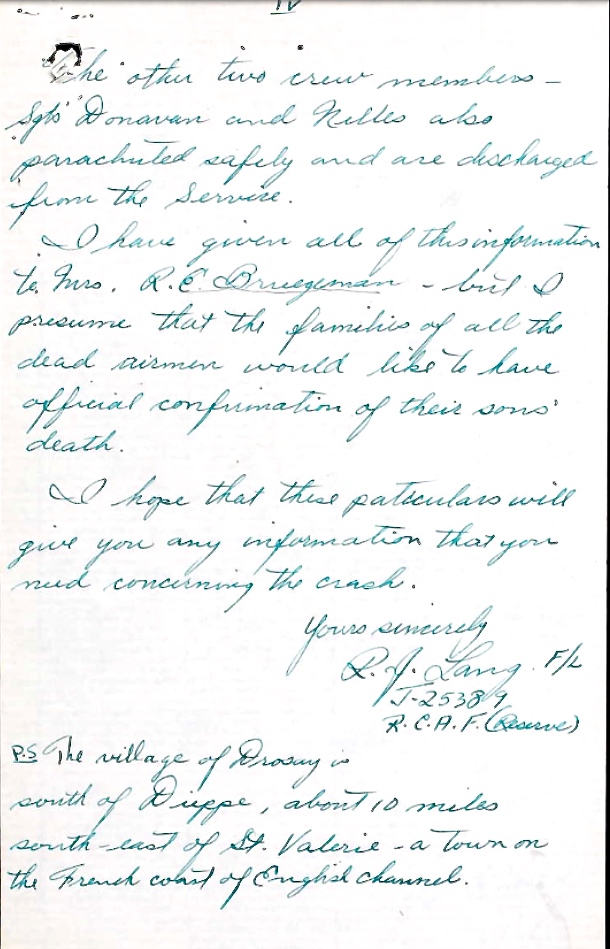 IV
The other two crew members -
Sgts Donavan and Nelles also
parachuted safely and are discharged
from the Service.
I have given all of this information
to Mrs. R.E. Bruegeman - but I
presume that the families of all the
dead airmen would like to have
official confirmation of their sons'
death.
I hope that these paticulars will
give you any information that you
need concerning the crash.
Yours sincerely
R. J. Lang. F/L
J-25389
R.C.A.F. (Reserve)
P.S The village of Drosay is
south of Dieppe, about 10 miles
south-east of St. Valerie - a town on
the French coast of English channel.